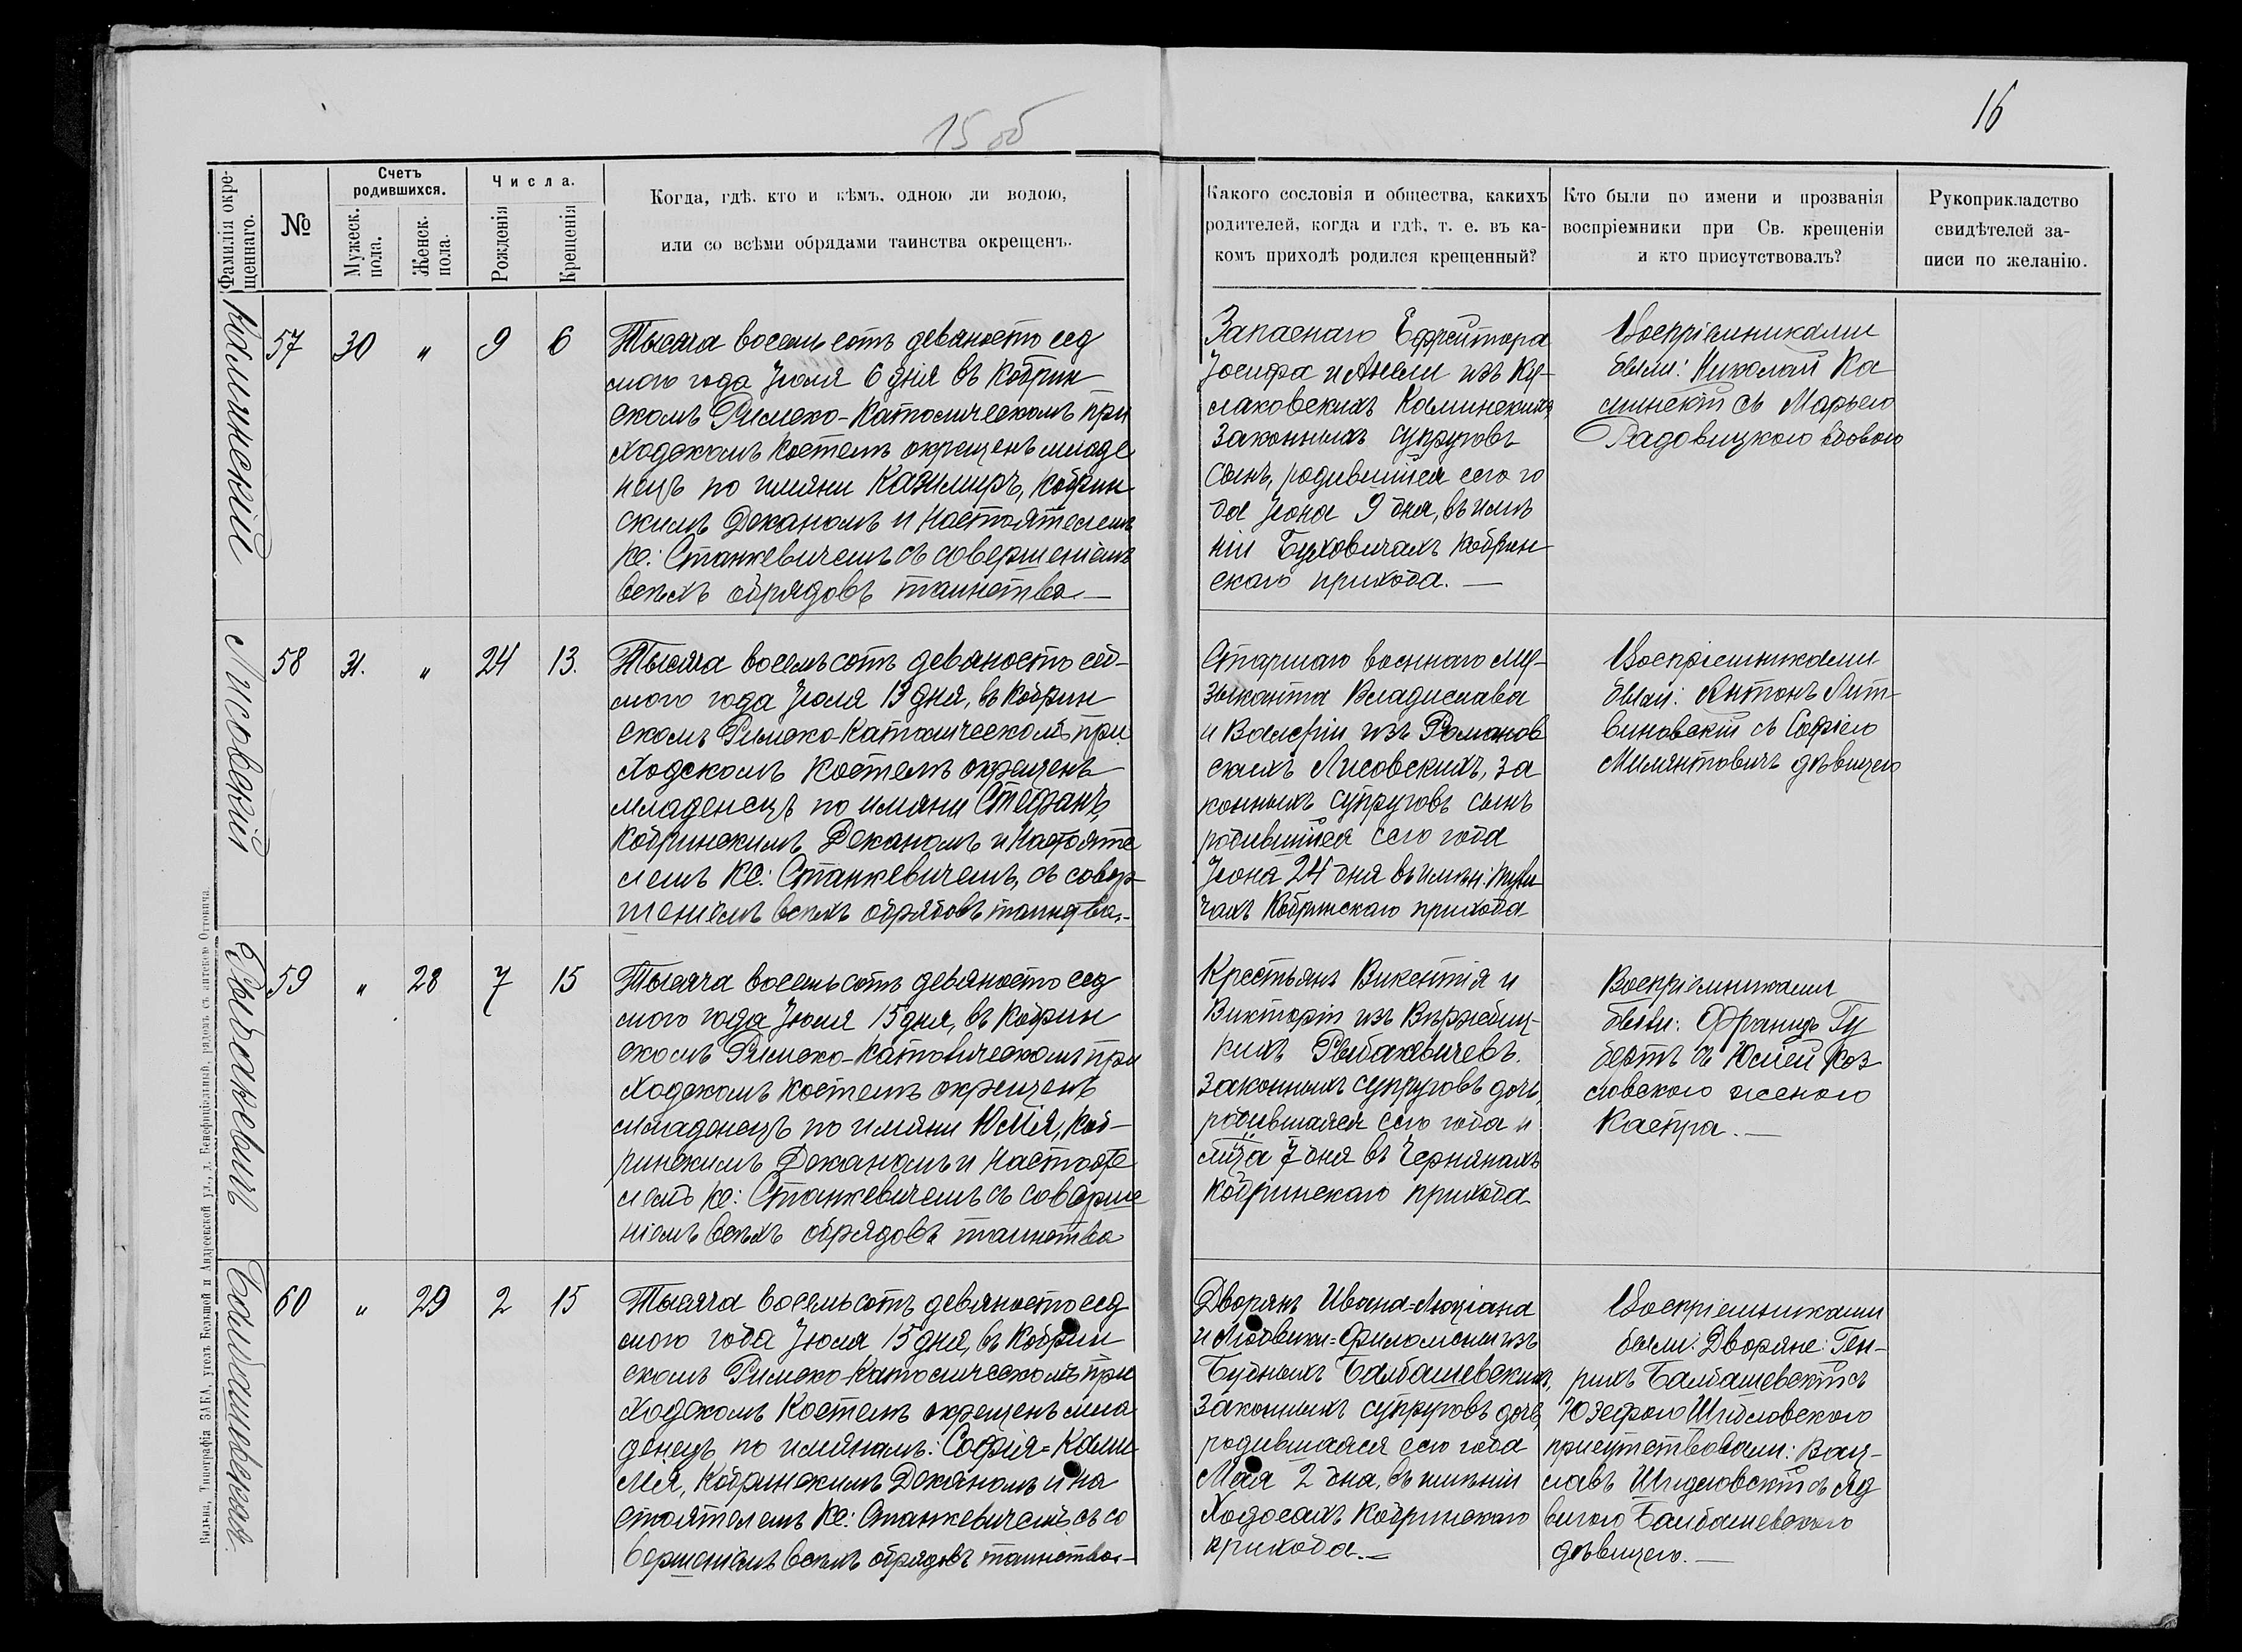 15 об
16
Фамилія окрещеннаго.
№
Счетъ родившихся.
Мужеск. пола.
Женск. пола.
Числа.
Рожденія
Крещенія
Когда, гдѣ, кто и кѣмъ, одною ли водою,
или со всѣми обрядами таинства окрещенъ.
Какого сословія и общества, какихъ
родителей, когда и гдѣ, т. е. въ ка-
комъ приходѣ родился крещенный?
Кто были по имени и прозванія
воспріемники при Св. крещеніи
и кто присутствовалъ?
Рукоприкладство
свидѣтелей за-
писи по желанію.
Каминскій
57 30 " 9 6
Тысяча восемьсотъ девяносто сед
мого года Іюля 6 дня въ Кобрин
скомъ Римско-Католическомъ при
ходскомъ костелѣ окрещенъ младе
нецъ по имяни Казимиръ, Кобрин
скимъ Деканомъ и Настоятелемъ
Кс: Станкевичемъ съ совершеніемъ
всѣхъ обрядовъ таинства —
Запаснаго Ефрейтора
Іосифа и Анели изъ Ку-
лаковскихъ Каминскихъ
законныхъ супруговъ
сынъ, родившійся сего го
да Іюна 9 дня, въ имѣ
ніи Буховичахъ Кобрин
скаго прихода. —
Воспріемниками
были: Николай Ка
минскій съ Марьею
Радовицкою вдовою
Лисовскій
58 31. " 24 13.
Тысяча восемьсотъ девяносто сед-
мого года Іюля 13 дня, въ Кобрин
скомъ Римско-Католическомъ при
ходскомъ Костелѣ окрещенъ
младенецъ по имяни Стефанъ,
Кобринскимъ Деканомъ и Настояте
лемъ Кс: Станкевичемъ, съ совер-
шеніемъ всѣхъ обрядовъ таинства.-
Старшаго военнаго му-
зыканта Владислава
и Валеріи изъ Романов
скихъ Лисовскихъ, за
конныхъ супруговъ сынъ
родившійся сего года
Іюна 24 дня въ имѣн:
чахъ Кобринскаго прихода
Воспріемниками
были: Антонъ Лит-
виновскій съ Софіею
дѣвицею
Рыбакевичъ
59 " 28 7 15
Тысяча восемьсотъ девяносто сед
мого года Іюля 15 дня, въ Кобрин
скомъ Римско-Католическомъ при
ходскомъ костелѣ окрещенъ
младенецъ по имяни Юлія, Коб-
ринскимъ Деканомъ и Настояте
лемъ Кс: Станкевичемъ съ соверше
ніемъ всѣхъ обрядовъ таинства
Крестьянъ Викентія и
Викторіи изъ Вержбиц-
кихъ Рыбакевичевъ.
законныхъ супруговъ дочь,
родившаяся сего года и
мца 7 дня въ Чернянахъ
Кобринскаго прихода
Воспріемниками
были: Францъ Гу
бертъ съ Юліей Коз
ловскою женою
Каспра. —
Балбашевская
60 " 29 2 15
Тысяча восемьсотъ девяносто сед
мого года Іюля 15 дня, въ Кобрин
скомъ Римско-Католическомъ при
ходскомъ Костелѣ окрещенъ мла
денецъ по имянамъ: Софія=Ками
лія, Кобринскимъ Деканомъ и На
стоятелемъ Кс: Станкевичемъ съ со
вершеніемъ всѣхъ обрядовъ таинства.-
Дворянъ Ивана=Люціана
и Людвики=Филомены изъ
Будныхъ Балбашевскихъ,
законныхъ супруговъ дочь,
родившаяся сего года
Мая 2 дна, въ имѣніи
Ходосахъ Кобринскаго
прихода. —
Воспріемниками
были: Дворяне: Ген-
рихъ Балбашевскій съ
Юзефою Шидловскою
присутствовали: Вац-
лавъ Шидловскій съ Яд
вигою Балбашевскою
дѣвицею. —
Вильна, Типографія ЗАКА, уголъ Большой и Андреевской ул., д. Бенефиціальный, рядомъ съ аптекою Оттовича.